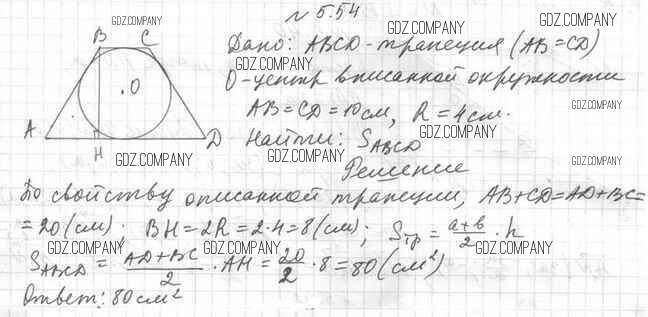 № 5.54
GDZ.COMPANY
B C GDZ.COMPANY
Дано: ABCD - трапеция (AB = CD)
GDZ.COMPANY
O - центр вписанной окружности
.O
AB = CD = 10 см, R = 4 см.
GDZ.COMPANY
A H D
Найти: S_ABCD
GDZ.COMPANY
GDZ.COMPANY GDZ.COMPANY GDZ.COMPANY
Решение
По свойству описанной трапеции, AB + CD = AD + BC =
= 20 (см); BH = 2R = 2·4 = 8 (см); S_тр = (a+b)/2 · h
GDZ.COMPANY GDZ.COMPANY GDZ.COMPANY
S_ABCD = (AD + BC)/2 · AH = 20/2 · 8 = 80 (см²)
Ответ: 80 см²